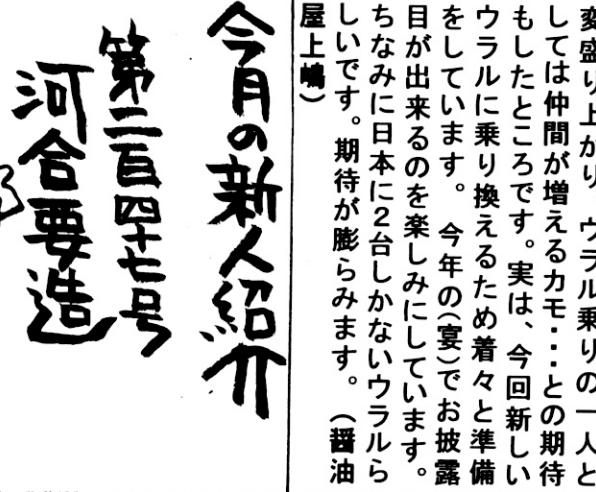 変盛り上がり、ウラル乗りの一人と
しては仲間が増えるカモ・・・との期待
もしたところです。実は、今回新しい
ウラルに乗り換えるため着々と準備
をしています。 今年の(宴)でお披露
目が出来るのを楽しみにしています。
ちなみに日本に2台しかないウラルら
しいです。期待が膨らみます。 (醤油
屋上嶋)
今月の新人紹介
第二百四十七号
河合要造